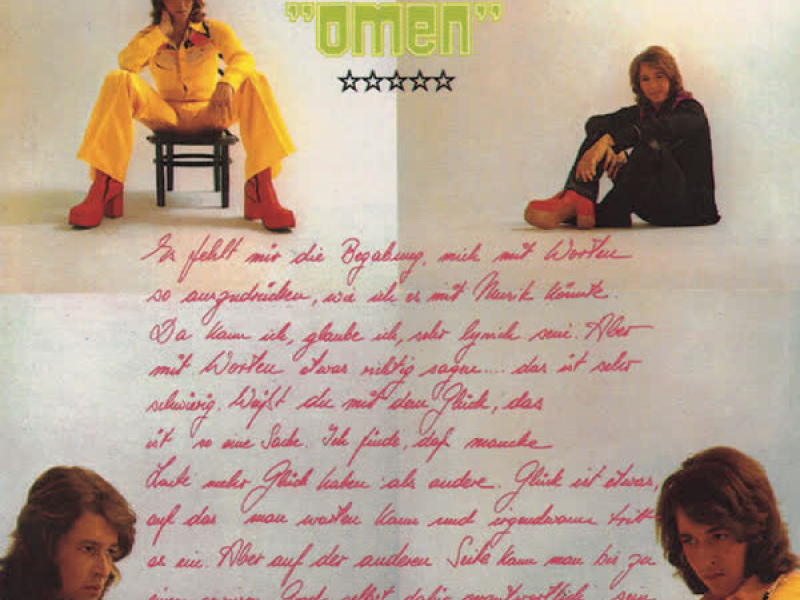 "omen"
Es fehlt mir die Begabung, mich mit Worten
so auszudrücken, wie ich es mit Musik könnte.
Da kann ich, glaube ich, sehr lyrisch sein. Aber
mit Worten etwas richtig sagen.... das ist sehr
schwierig. Weißt du mit dem Glück, das
ist so eine Sache. Ich finde, daß manche
Leute mehr Glück haben als andere. Glück ist etwas,
auf das man warten kann und irgendwann tritt
es ein. Aber auf der anderen Seite kann man bis zu
einem Grade selbst dafür verantwortlich sein